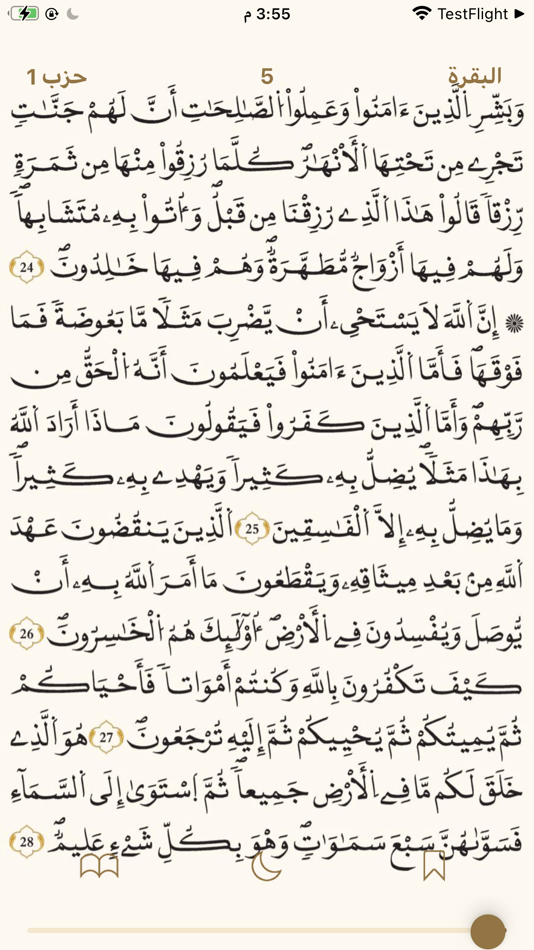 3:55 م TestFlight
البقرة 5 حزب 1
وَبَشِّرِ اِ۬لذِينَ ءَامَنُواْ وَعَمِلُواْ اُ۬لصَّٰلِحَٰتِ أَنَّ لَهُمْ جَنَّٰتٖ
تَجْرِے مِن تَحْتِهَا اَ۬لَانْهَٰرُۖ كُلَّمَا رُزِقُواْ مِنْهَا مِن ثَمَرَةٖ
رِّزْقاٗ قَالُواْ هَٰذَا اَ۬لذِے رُزِقْنَا مِن قَبْلُۖ وَأُتُواْ بِهِۦ مُتَشَٰبِهاٗۖ
وَلَهُمْ فِيهَا أَزْوَٰجٞ مُّطَهَّرَةٞۖ وَهُمْ فِيهَا خَٰلِدُونَۖ 24
۞ إِنَّ اَ۬للَّهَ لَا يَسْتَحْيِۦ أَنْ يَّضْرِبَ مَثَلاٗ مَّا بَعُوضَةٗ فَمَا
فَوْقَهَاۖ فَأَمَّا اَ۬لذِينَ ءَامَنُواْ فَيَعْلَمُونَ أَنَّهُ اُ۬لْحَقُّ مِن
رَّبِّهِمْۖ وَأَمَّا اَ۬لذِينَ كَفَرُواْ فَيَقُولُونَ مَاذَا أَرَادَ اَ۬للَّهُ
بِهَٰذَا مَثَلاٗۖ يُضِلُّ بِهِۦ كَثِيراٗ وَيَهْدِے بِهِۦ كَثِيراٗۖ
وَمَا يُضِلُّ بِهِۦ إِلَّا اَ۬لْفَٰسِقِينَ 25 اَ۬لذِينَ يَنقُضُونَ عَهْدَ
اَ۬للَّهِ مِنۢ بَعْدِ مِيثَٰقِهِۦ وَيَقْطَعُونَ مَا أَمَرَ اَ۬للَّهُ بِهِۦ أَنْ
يُّوصَلَ وَيُفْسِدُونَ فِے اِ۬لَارْضِۖ أُوْلَٰٓئِكَ هُمُ اُ۬لْخَٰسِرُونَۖ 26
كَيْفَ تَكْفُرُونَ بِاللَّهِ وَكُنتُمْ أَمْوَٰتاٗ فَأَحْيَاكُمْ
ثُمَّ يُمِيتُكُمْ ثُمَّ يُحْيِيكُمْ ثُمَّ إِلَيْهِ تُرْجَعُونَۖ 27 هُوَ اَ۬لذِے
خَلَقَ لَكُم مَّا فِے اِ۬لَارْضِ جَمِيعاٗ ثُمَّ اَ۪سْتَوَىٰ إِلَى اَ۬لسَّمَآءِ
فَسَوَّىٰهُنَّ سَبْعَ سَمَٰوَٰتٖۖ وَهْوَ بِكُلِّ شَےْءٍ عَلِيمٞۖ 28